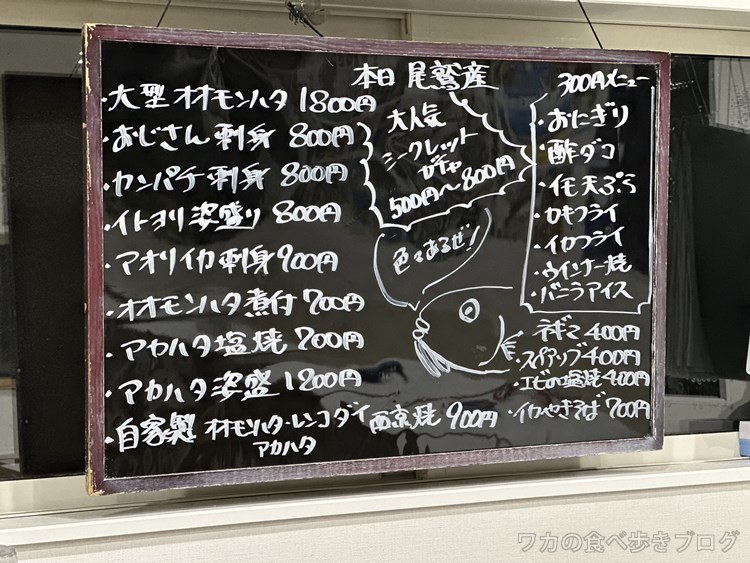 本日 尾鷲産
・大型オオモンハタ 1800円
・おじさん刺身 800円
・カンパチ刺身 800円
・イトヨリ姿盛り 800円
・アオリイカ刺身 900円
・オオモンハタ煮付 700円
・アカハタ塩焼 700円
・アカハタ姿盛 1200円
・自家製 オオモンハタ・レンコダイ 西京焼 900円
アカハタ
大人気
シークレット
ガチャ
500円〜800円
色々あるぜ!
300円メニュー
・おにぎり
・酢ダコ
・イモ天ぷら
・カキフライ
・イカフライ
・ウインナー焼
・バニラアイス
ネギマ 400円
スペアリブ 400円
・エビの塩焼 400円
・イカやきそば 700円
ワカの食べ歩きブログ